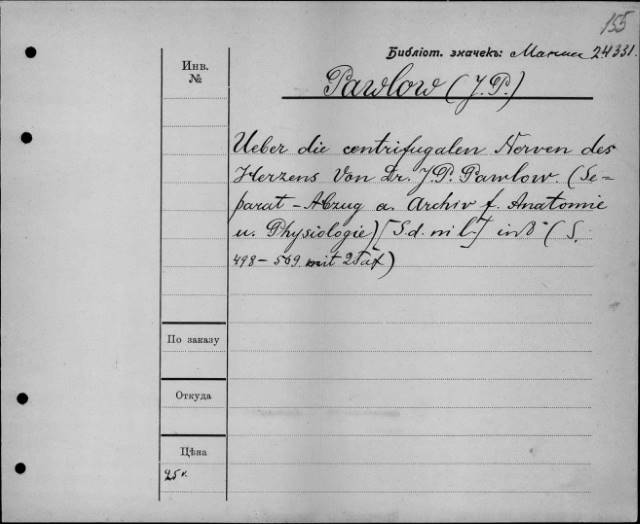 155
Библіот. значекъ: 24331.
Инв.
№
Pawlow (J. P.)
Ueber die centrifugalen Nerven des
Herzens Von Dr. J. P. Pawlow. (Se=
parat-Abzug a. Archiv f. Anatomie
u. Physiologie) [S. d. ni l.] in 8° (S.
498-569. mit 2 Taf)
По заказу
Откуда
Цѣна
25 к.